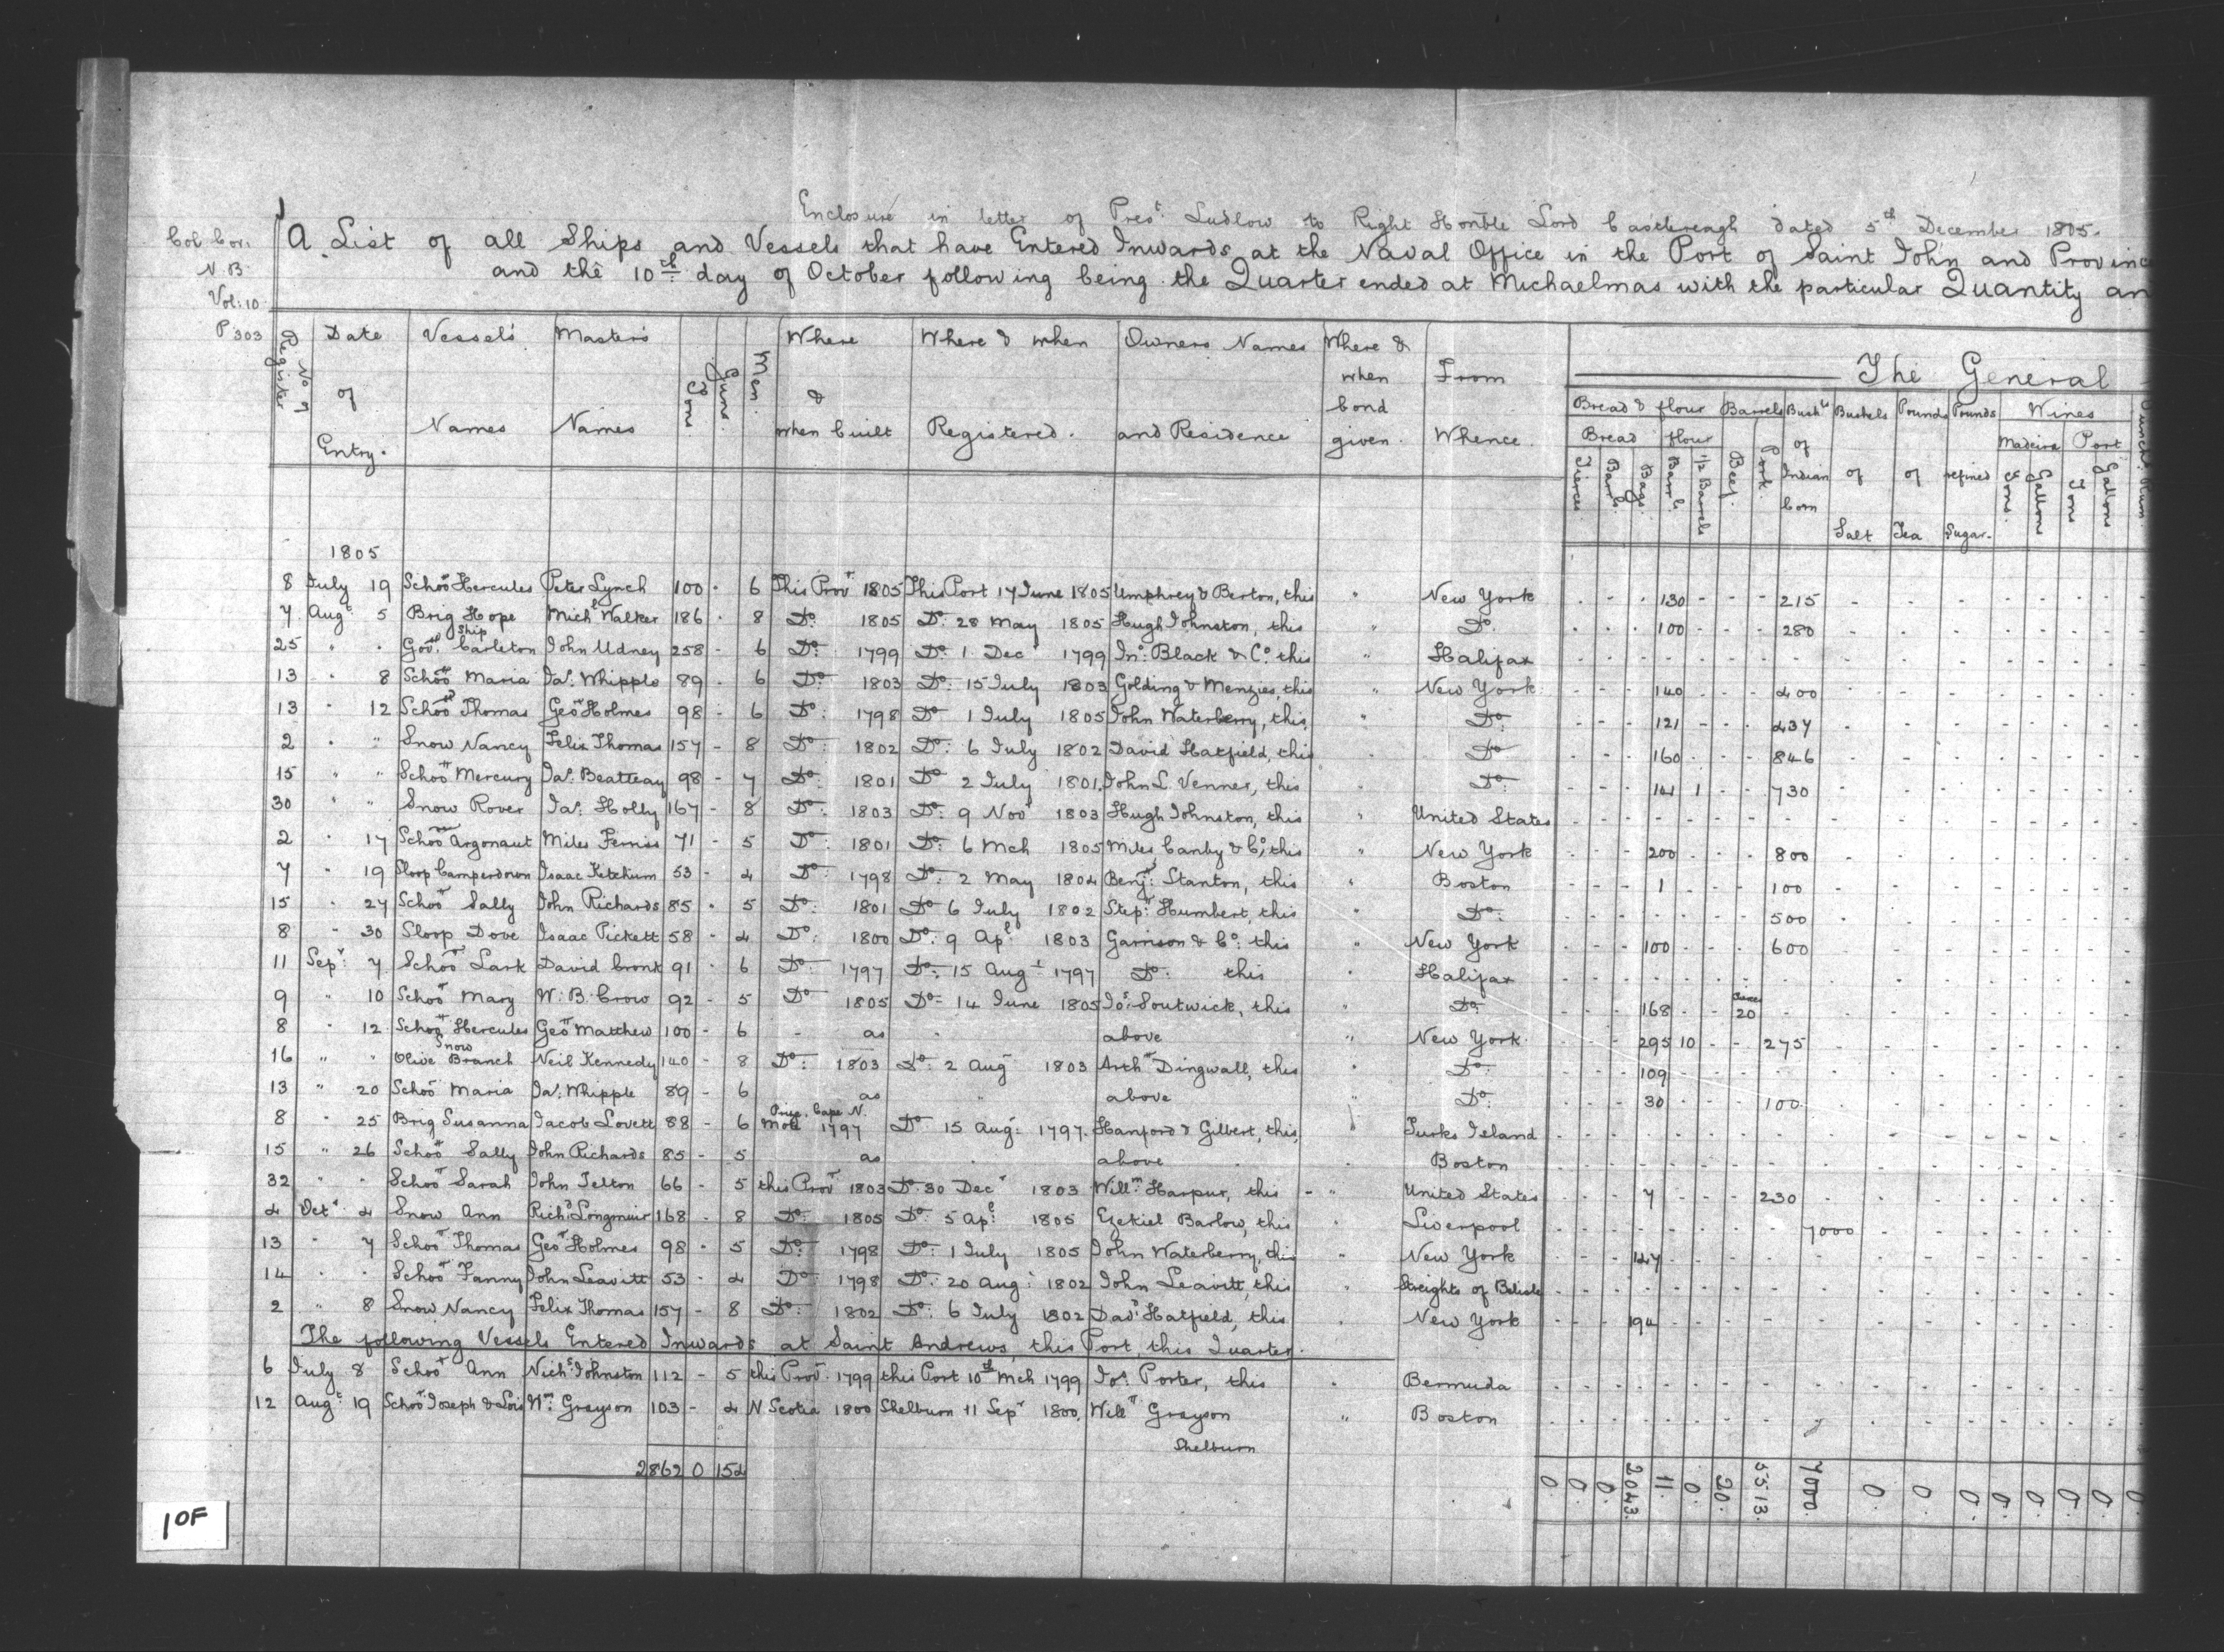 Enclosure in letter of Prest. Ludlow to Right Honble Lord Castlereagh dated 5th December 1805.
Col Cor.
N.B.
Vol: 10
P 303
A List of all Ships and Vessels that have Entered Inwards at the Naval Office in the Port of Saint John and Provinc
and the 10th day of October following being the Quarter ended at Michaelmas with the particular Quantity an
No of Register | Date of Entry. | Vessels' Names | Masters' Names | Tons. | Guns. | Men. | Where & when built | Where & when Registered. | Owners Names and Residence | Where & when bond given. | From Whence. | The General
Bread & flour | Barrels | Bushls of Indian Corn | Bushels of Salt | Pounds of Tea | Pounds refined Sugar. | Wines | Punchs. Rum.
Bread | flour | Madeira | Port
Tierces | Barrls. | Bags. | Barrls. | 1/2 Barrels | Beef. | Pork. | Tons. | Gallons | Tons | Gallons
1805
8 July 19 Schoor Hercules Peter Lynch 100 - 6 This Provr 1805 This Port 17 June 1805 Umphrey & Berton, this " New York 130 215
7 Augt 5 Brig Hope Michl Walker 186 - 8 Do. 1805 Do. 28 May 1805 Hugh Johnston, this " Do. 100 280
25 " " Ship Govr. Carleton John Udney 258 - 6 Do. 1799 Do. 1 Decr 1799 Jno. Black & Co. this " Halifax
13 " 8 Schoor Maria Jas. Whipple 89 - 6 Do. 1803 Do. 15 July 1803 Golding & Menzies, this " New York 140 400
13 " 12 Schoor Thomas Geo Holmes 98 - 6 Do. 1798 Do 1 July 1805 John Waterberry, this, " Do. 121 437
2 " " Snow Nancy Felix Thomas 157 - 8 Do. 1802 Do. 6 July 1802 David Hatfield, this Do 160 846
15 " " Schoor Mercury Jas. Beatteay 98 - 7 Do. 1801 Do 2 July 1801, John L. Venner, this " Do. 141 1 730
30 " " Snow Rover Jas. Holly 167 - 8 Do. 1803 Do. 9 Novr 1803 Hugh Johnston, this " United States
2 " 17 Schoor Argonaut Miles Ferriss 71 - 5 Do. 1801 Do. 6 Mch 1805 Miles Canby & Co, this " New York 200 800
7 " 19 Sloop Camperdown Isaac Ketchum 53 - 4 Do. 1798 Do. 2 May 1804 Benjn. Stanton, this " Boston 1 100
15 " 27 Schoor Sally John Richards 85 - 5 Do. 1801 Do 6 July 1802 Stepn. Humbert, this " Do. 500
8 " 30 Sloop Dove Isaac Pickett 58 - 4 Do. 1800 Do. 9 Apl 1803 Garrison & Co. this " New York 100 600
11 Sepr. 7 Schoor Lark David Cronk 91 - 6 Do. 1797 Do. 15 Augt 1797 Do. this " Halifax
9 " 10 Schoor Mary W. B. Crow 92 - 5 Do 1805 Do. 14 June 1805 Jos. Soutwick, this " Do. 168 20
8 " 12 Schoor Hercules Geo Matthew 100 - 6 - as " above " New York 295 10 275
16 " " Snow Olive Branch Neil Kennedy 140 - 8 Do. 1803 Do. 2 Aug 1803 Arthr Dingwall, this " Do. 109
13 " 20 Schoor Maria Jas. Whipple 89 - 6 as " above " Do. 30 100
8 " 25 Brig Susanna Jacob Lovett 88 - 6 Prize, Cape N. Mole 1797 Do 15 Aug. 1797. Hanford & Gilbert, this, " Turks Island
15 " 26 Schoor Sally John Richards 85 - 5 as " above " Boston
32 " " Schoor Sarah John Telton 66 - 5 this Provr 1803 Do. 30 Decr 1803 Willm. Harpur, this - " United States 7 230
4 Octr 4 Snow Ann Richd. Longmuir 168 - 8 Do. 1805 Do. 5 Apl. 1805 Ezekiel Barlow, this " Liverpool 7000
13 " 7 Schoor Thomas Geo Holmes 98 - 5 Do. 1798 Do. 1 July 1805 John Waterberry, this " New York 147
14 " " Schoor Fanny John Leavitt 53 - 4 Do. 1798 Do. 20 Aug. 1802 John Leavitt, this " Streights of Belisle
2 " 8 Snow Nancy Felix Thomas 157 - 8 Do. 1802 Do. 6 July 1802 Davd. Hatfield, this " New York 194
The following Vessels Entered Inwards at Saint Andrews, this Port, this Quarter.
6 July 8 Schoor Ann Nichs. Johnston 112 - 5 this Provr. 1799 this Port 10th Mch 1799 Jos. Porter, this " Bermuda
12 Augt 19 Schoor Joseph & Lois Wm. Grayson 103 - 4 N Scotia 1800 Shelburn 11 Sepr 1800, Willm Grayson " Boston
Shelburn
2862 0 154 0. 0. 0. 2043. 11. 0. 20. 5513. 7000. 0. 0. 0. 0. 0. 0. 0. 0.
1 OF